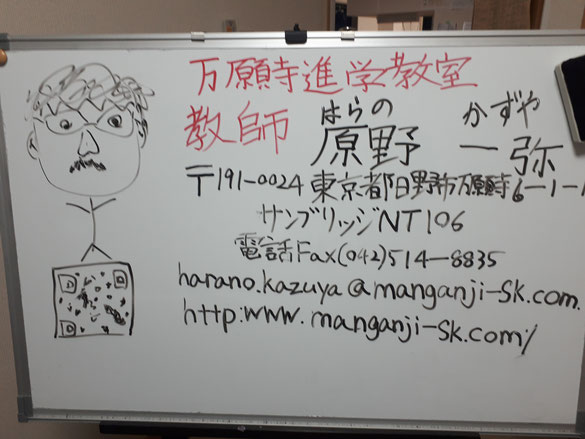 万願寺進学教室
はらの かずや
教師 原野 一弥
〒191-0024 東京都日野市万願寺6-1-1
サンブリッジNT106
電話Fax(042)514-8835
harano.kazuya@manganji-sk.com
http:www.manganji-sk.com/